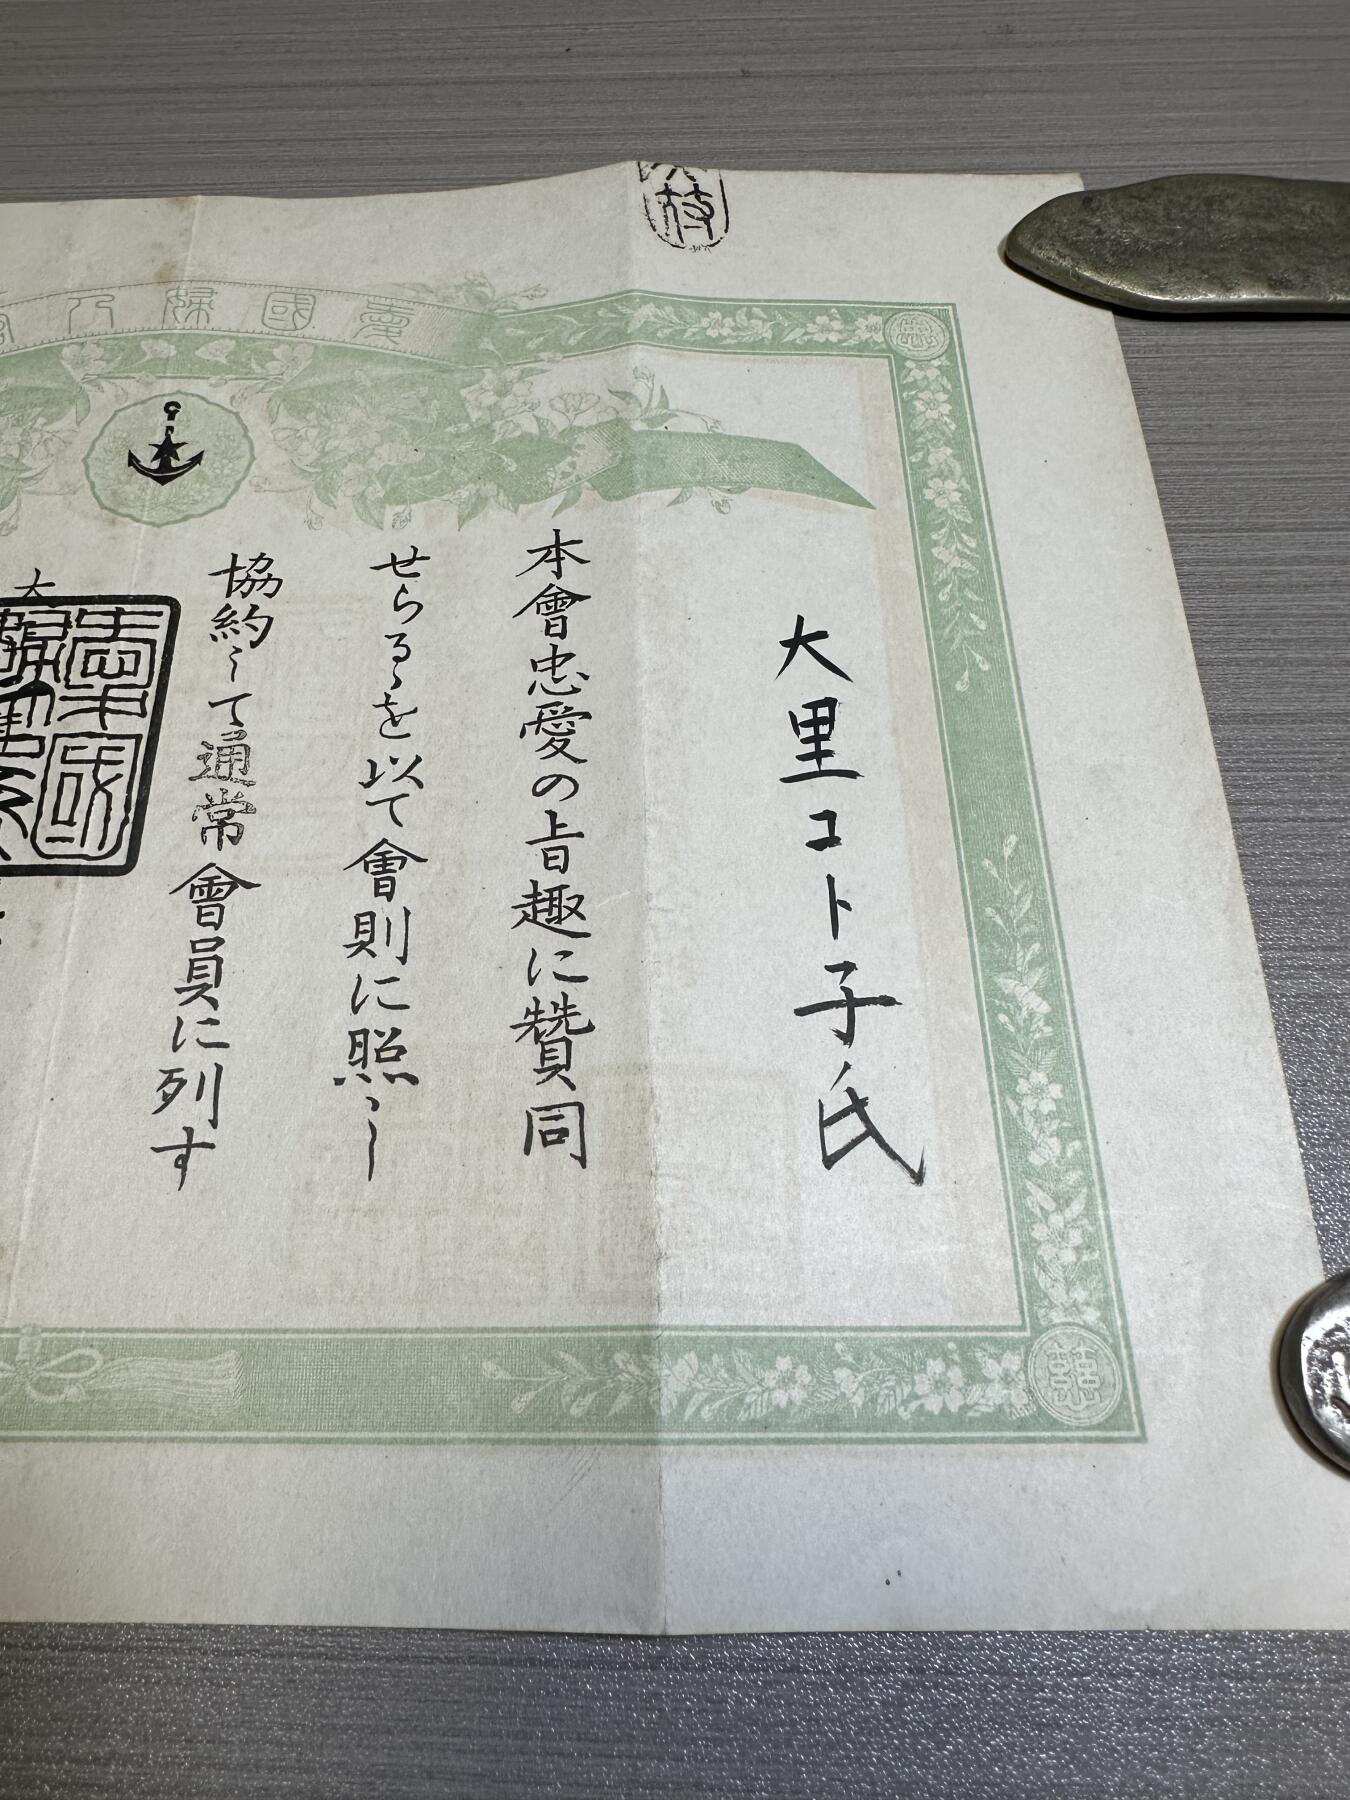 愛國婦人會
大里コト子氏
本會忠愛の旨趣に賛同
せらるゝを以て會則に照し
協約して通常會員に列す
大
枝